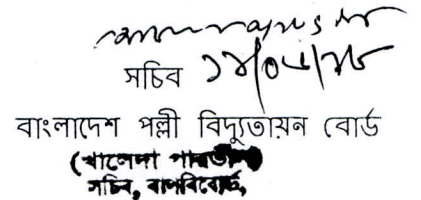 সচিব
বাংলাদেশ পল্লী বিদ্যুতায়ন বোর্ড
(খালেদা পারভীন)
সচিব, বাপবিবোর্ড,